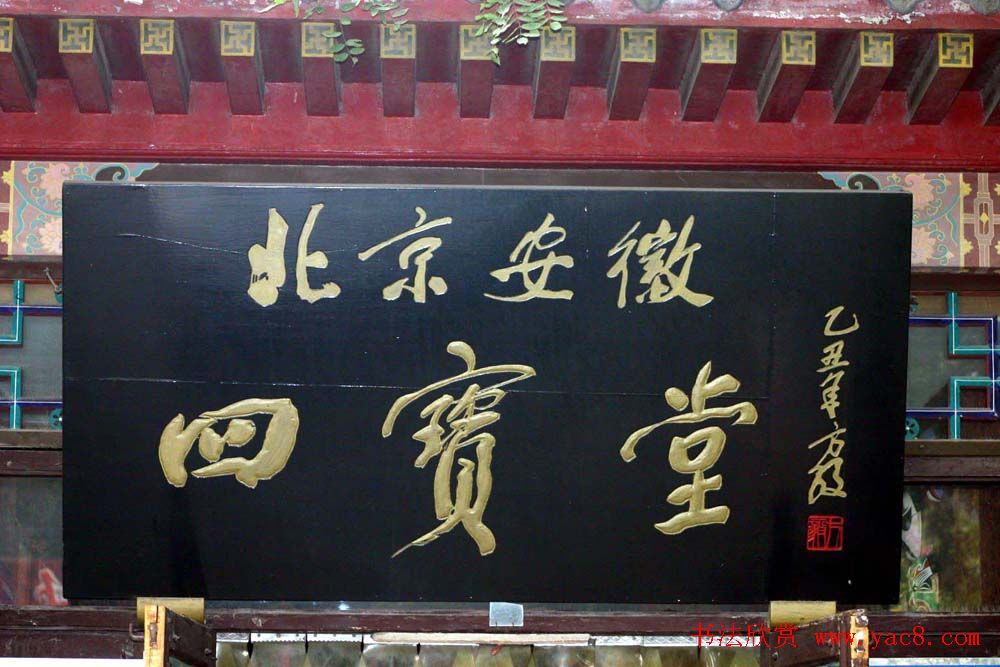 北京安徽
四寶堂
乙丑年方毅
书法欣赏 www.yac8.com